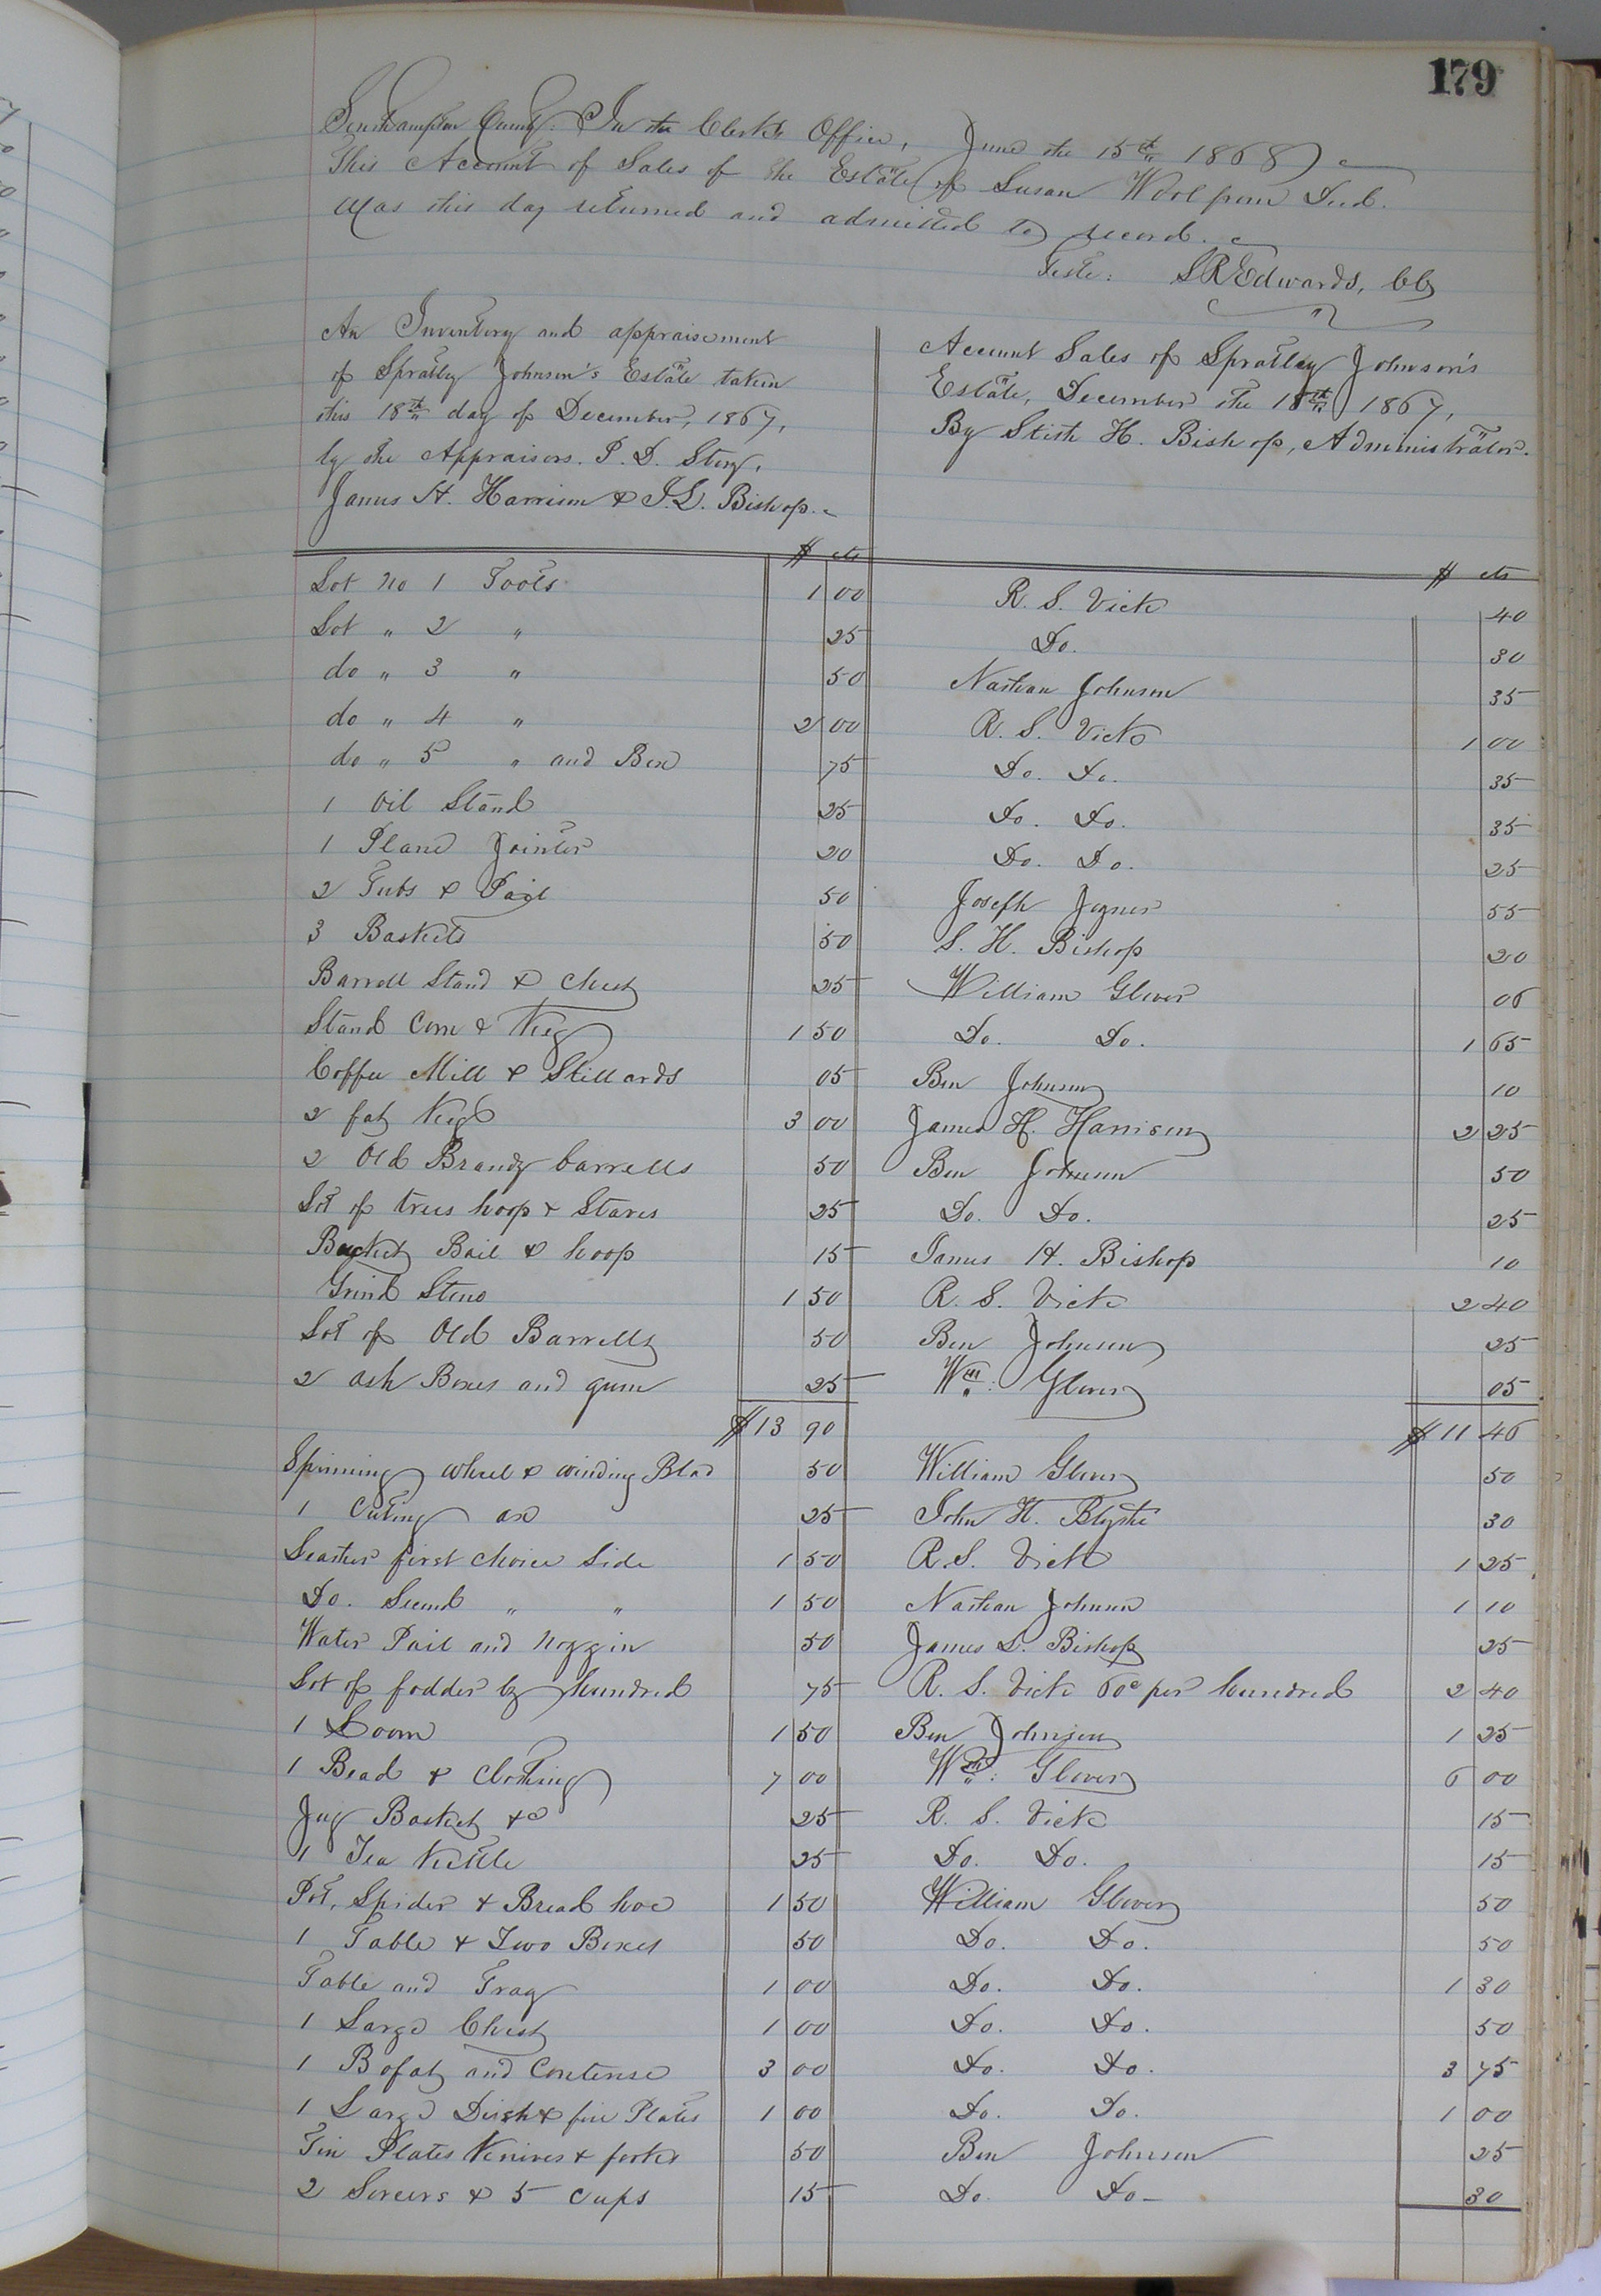 179
Southampton County: In the Clerk's Office, June the 15th 1868
This Account of Sales of the Estate of Susan Woolfrom Decd.
Was this day returned and admitted to record.
Teste: S R Edwards, CC
An Inventory and appraisement
of Spratley Johnson's Estate taken
this 18th day of December, 1867,
by the Appraisors. P. D. Story,
James H. Harrison & J. L. Bishop.
Account Sales of Spratley Johnson's
Estate, December the 18th 1867,
By Stith H. Bishop, Administrator.
$ cts $ cts
Lot no 1 Tools 1 00 R. S. Vick 40
Lot " 2 " 25 Do. 30
do " 3 " 50 Nathan Johnson 35
do " 4 " 2 00 R. S. Vick 1 00
do " 5 " and Box 75 Do. Do. 35
1 Oil Stand 25 Do. Do. 35
1 Plane Jointer 20 Do. Do. 25
2 Tubs & Pail 50 Joseph Joyner 55
3 Baskets 50 S. H. Bishop 20
Barrell Stand & Chest 25 William Glover 06
Stand Corn & Keg 1 50 Do. Do. 1 65
Coffee Mill & Stillards 05 Ben Johnson 10
2 fat Kegs 3 00 James H. Harrison 2 25
2 Old Brandy barrells 50 Ben Johnson 50
Lot of trus hoop & Staves 25 Do. Do. 25
Bucket Bail & hoop 15 James H. Bishop 10
Grind Stone 1 50 R. S. Vick 2 40
Lot of Old Barrells 50 Ben Johnson 25
2 ash Boxes and gum 25 Wm: Glover 05
$13 90 $11 46
Spinning wheel & winding Blad 50 William Glover 50
1 Cuting ax 25 John H. Blythe 30
Leather first choice Side 1 50 R. S. Vick 1 25
Do. Second " " 1 50 Nathan Johnson 1 10
Water Pail and noggin 50 James L. Bishop 25
Lot of fodder by hundred 75 R. S. Vick 60c per hundred 2 40
1 Loom 1 50 Ben Johnson 1 25
1 Bead & Clothing 7 00 Wm: Glover 6 00
Jug Basket &c 25 R. S. Vick 15
1 Tea Kettle 25 Do. Do. 15
Pot, Spider & Bread hoe 1 50 William Glover 50
1 Table & Two Boxes 50 Do. Do. 50
Table and Tray 1 00 Do. Do. 1 30
1 Large Chest 1 00 Do. Do. 50
1 Bofat and Contense 3 00 Do. Do. 3 75
1 Large Dish & five Plates 1 00 Do. Do. 1 00
Tin Plates Knives & forks 50 Ben Johnson 25
2 Sorcers & 5 Cups 15 Do. Do- 30